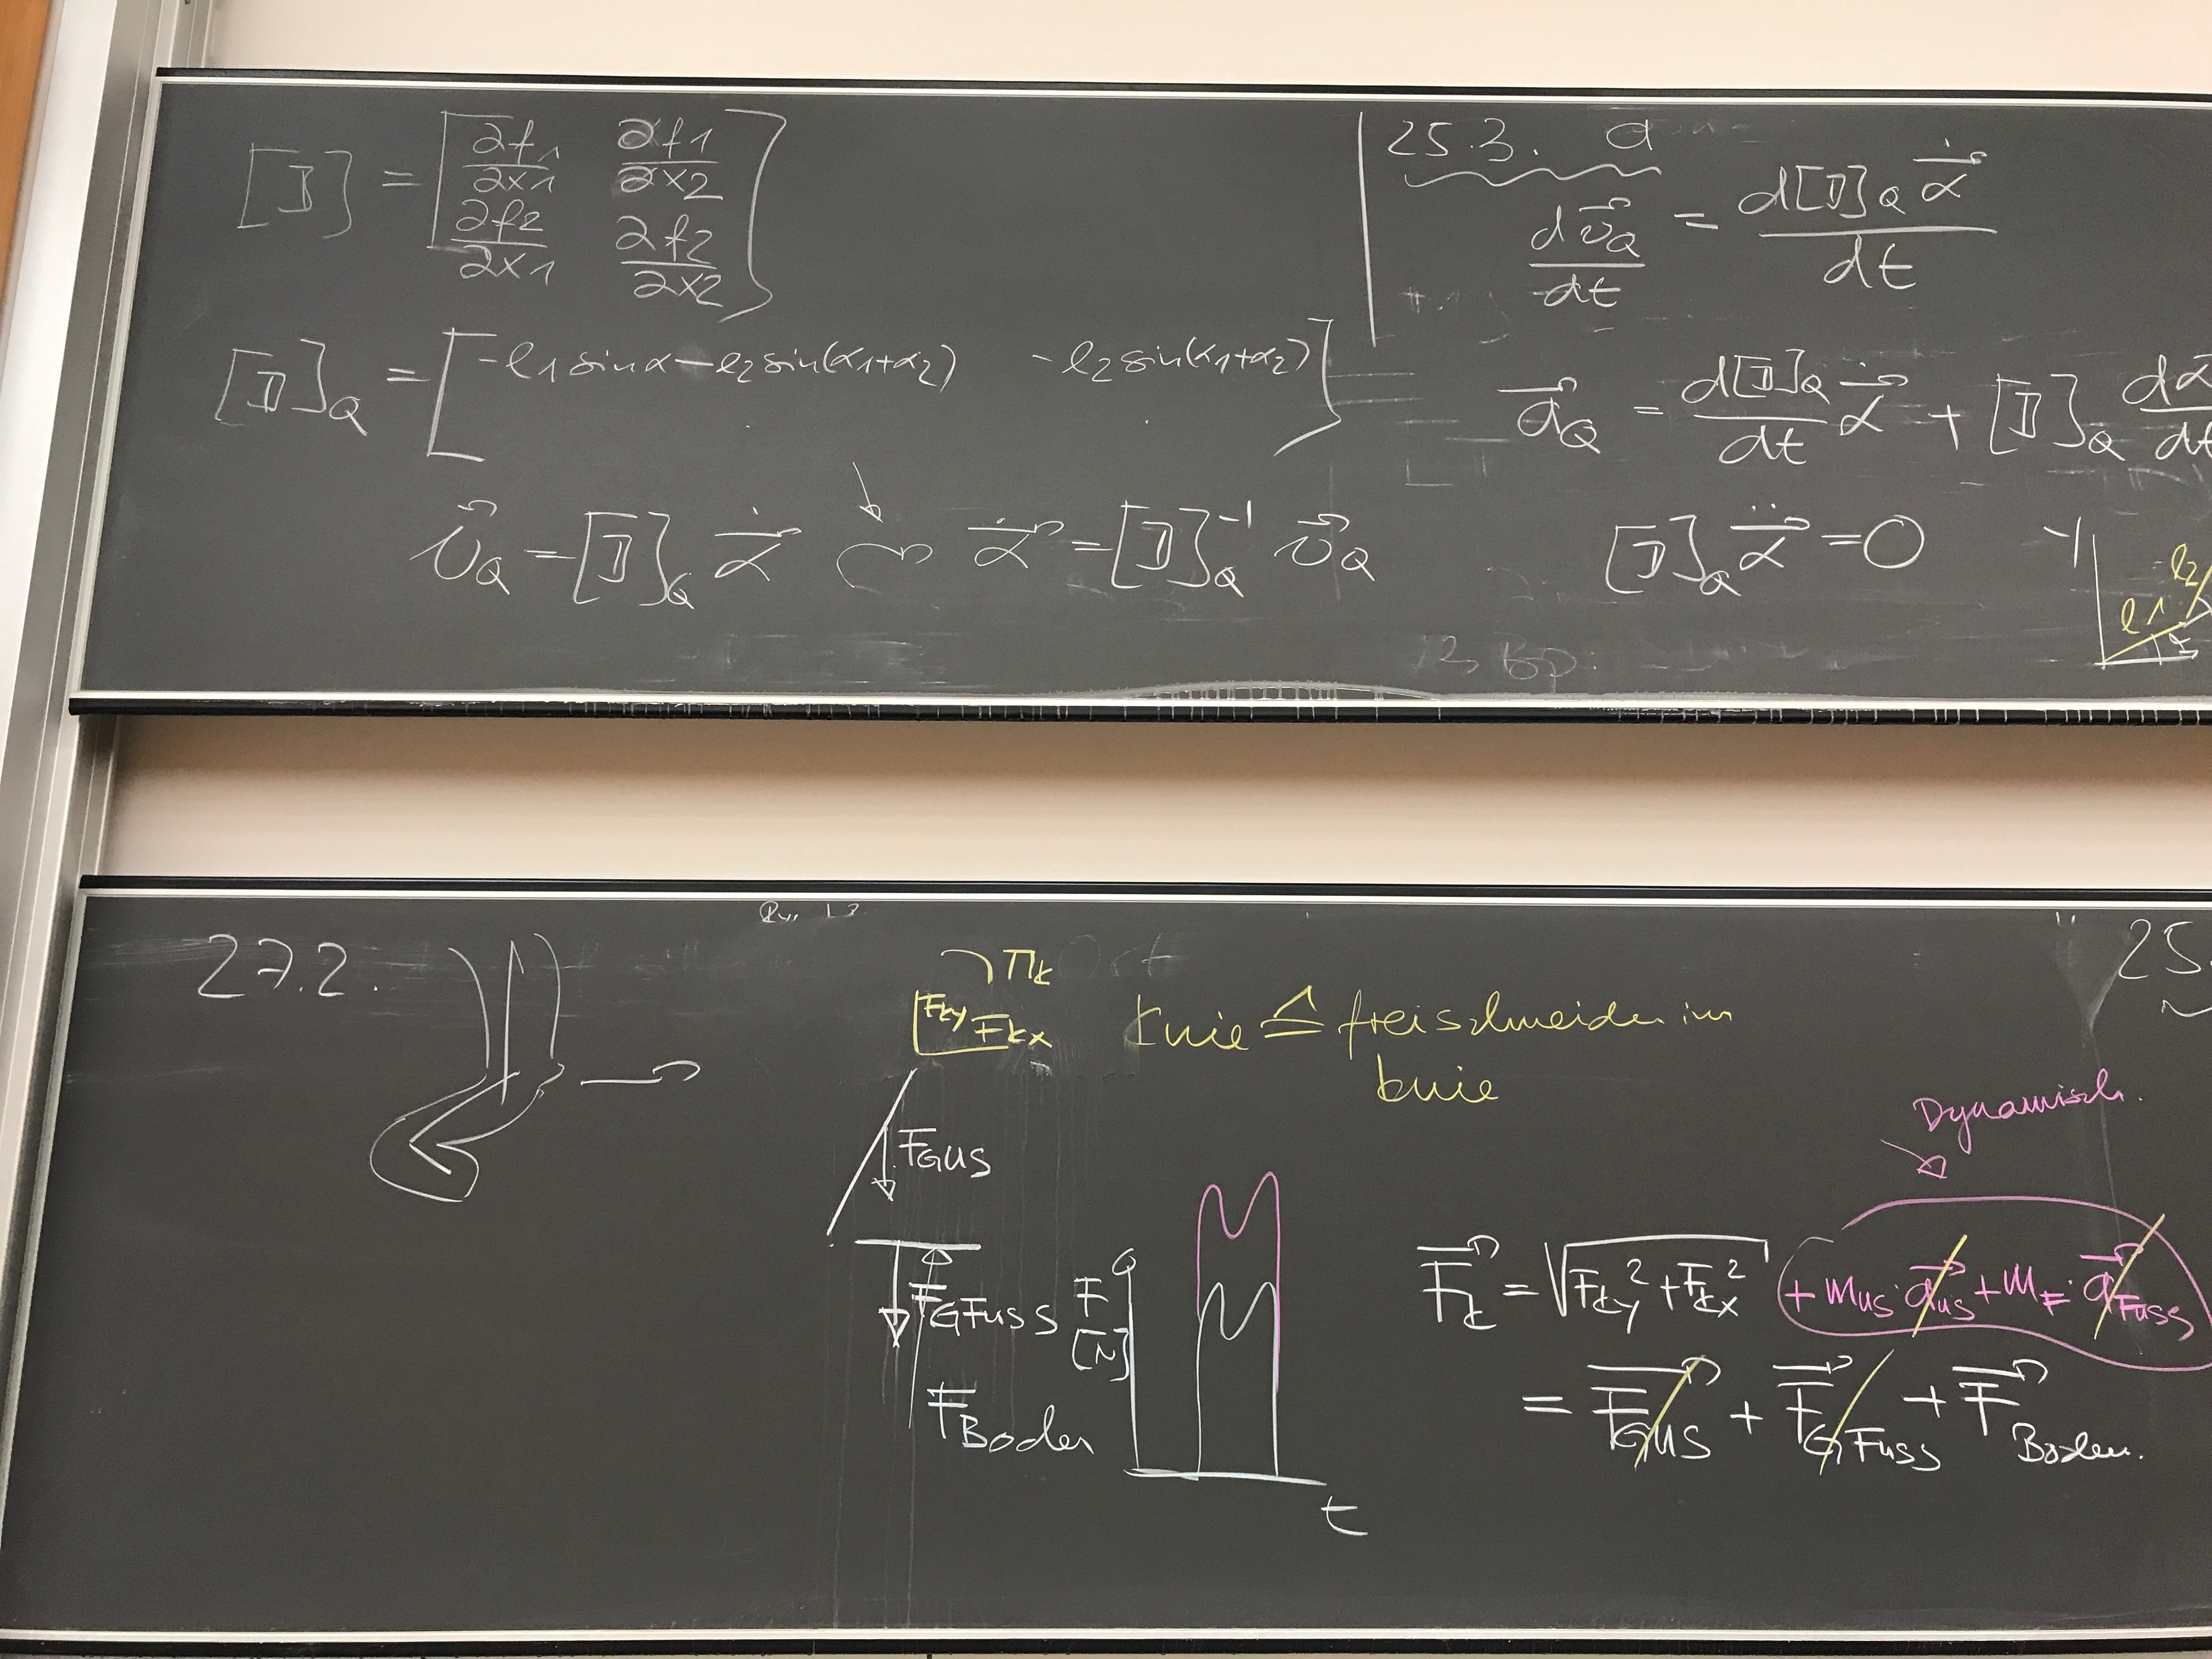 [J] = [∂f1/∂x1 ∂f1/∂x2
∂f2/∂x1 ∂f2/∂x2]
[J]Q = [-l1 sinα - l2 sin(α1+α2) - l2 sin(α1+α2)]
v⃗Q = [J]Q α̇⃗ α̇⃗ = [J]Q⁻¹ v⃗Q
25.3. a
dv⃗Q/dt = d[J]Q α̇⃗/dt
a⃗Q = d[J]Q/dt α̇⃗ + [J]Q dα/dt
[J]Q α̈⃗ = 0
l2
l1
27.2.
MK
FKy FKx
Knie ≙ freischneiden im
Knie
FGUS
FGFuss
FBoden
F
[N]
t
Dynamisch.
F⃗K = √FKy² + FKx² + mUS · a⃗US + mF · a⃗Fuss
= F⃗GUS + F⃗GFuss + F⃗Boden.
25.